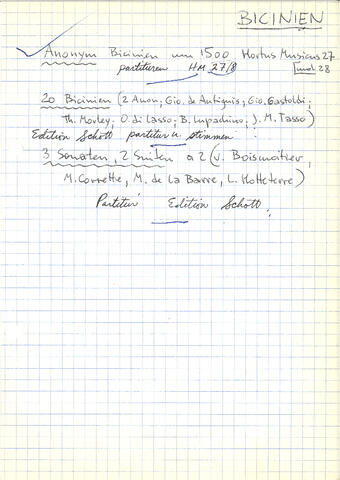 BICINIEN
Anonym Bicinien um 1500 Hortus Musicus 27
partituren HM 27/8 und 28
20 Bicinien (2 Anon; Gio. de Antiquis; Gio. Gastoldi;
Th. Morley; O. di Lasso; B. Lupachino; J. M. Tasso)
Edition Schott partitur u. stimmen
3 Sonaten, 2 Suiten a 2 (v. Boismortier,
M. Corrette, M. de La Barre, L. Hotteterre)
Partitur Edition Schott.